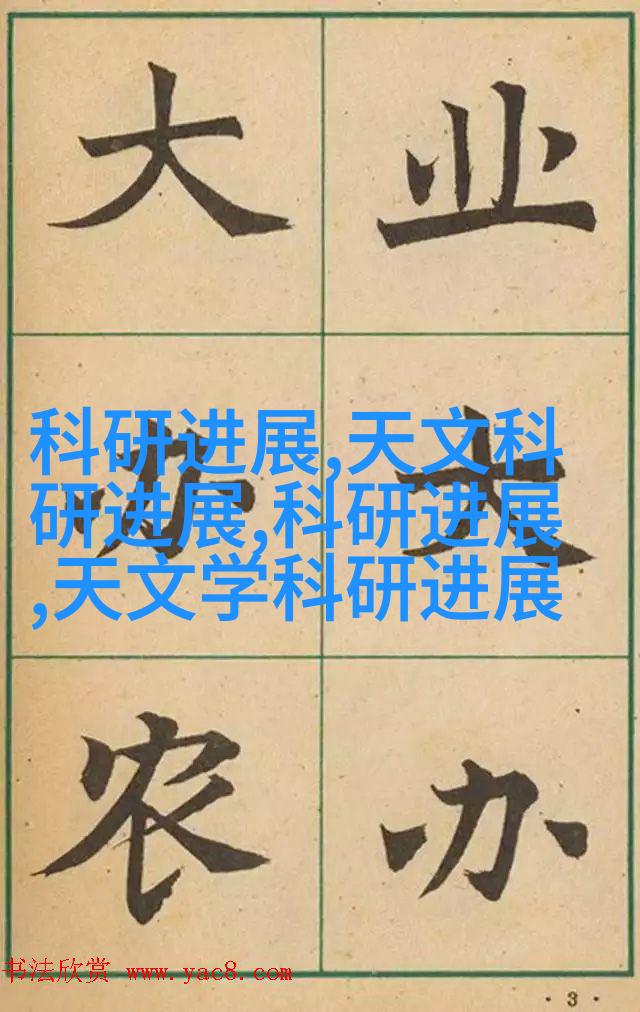 大办农
业大办
科研进展,天文科
研进展,科研进展
,天文学科研进展
书法欣赏 www.yac8.com
·3·